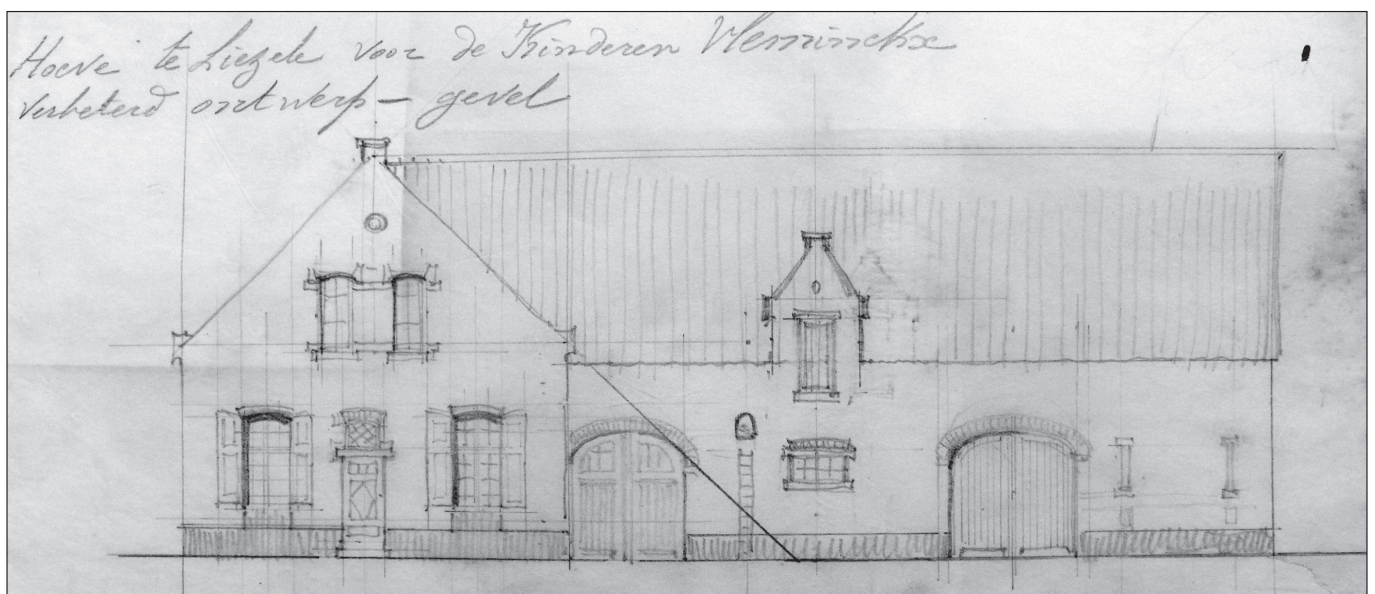 Hoeve te Liezele voor de Kinderen Vleminckx
verbeterd ontwerp - gevel